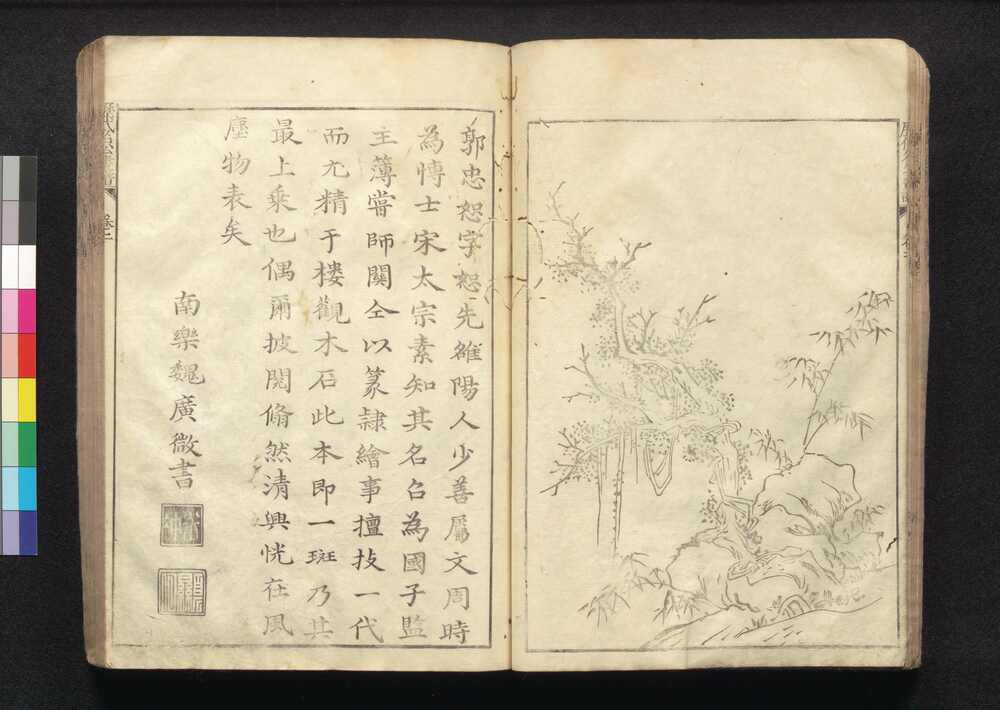 郭忠恕字恕先雒陽人少善屬文周時
為博士宋太宗素知其名召為國子監
主薄嘗師關仝以篆隸繪事擅技一代
而尤精于樓觀木石此本即一斑乃其
最上乘也偶爾披閱翛然清興恍在風
塵物表矣
南樂魏廣微書